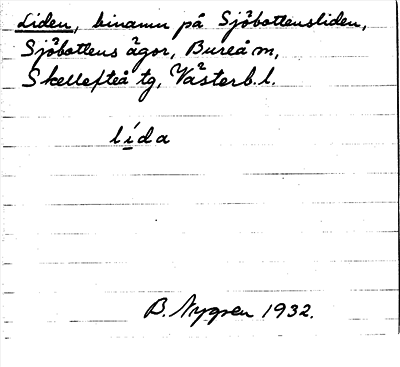 Liden, binamn på Sjöbottensliden,
Sjöbottens ägor, Bureå m,
Skellefteå tg, Västerb. l.
lída
B. Nygren 1932.